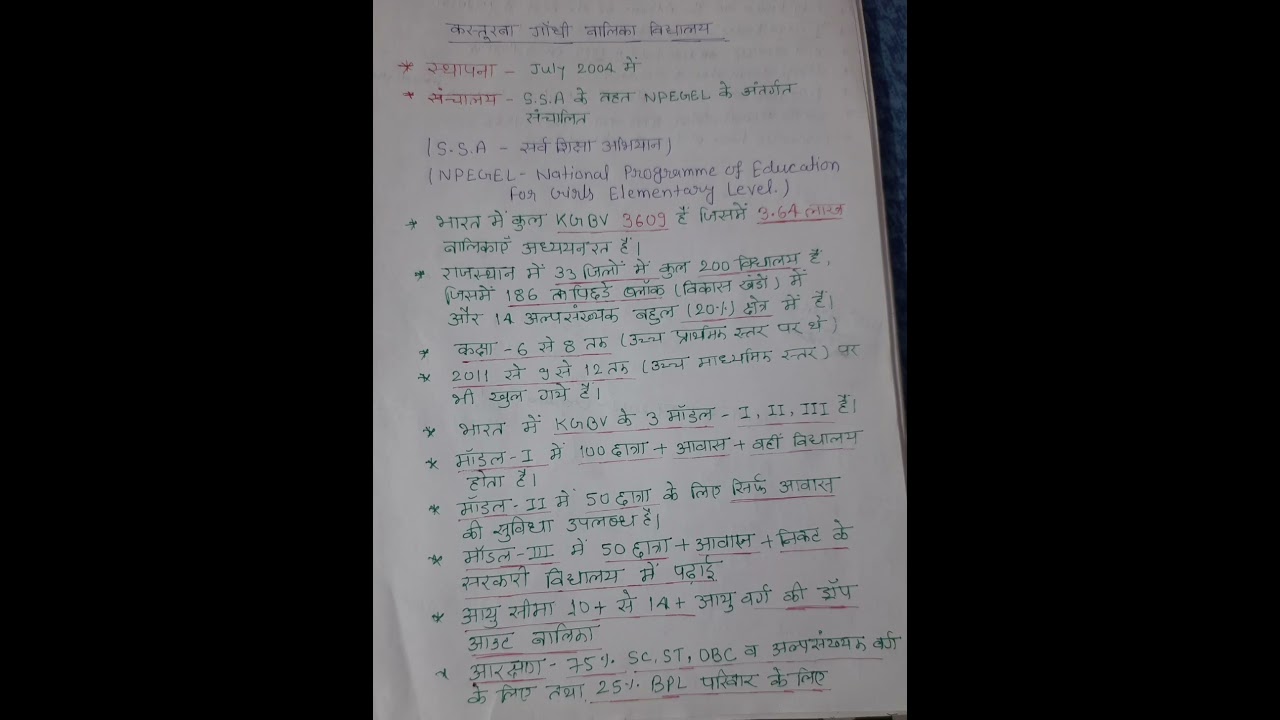 कस्तूरबा गाँधी बालिका विद्यालय
* स्थापना - July 2004 में
* संचालय - S.S.A के तहत NPEGEL के अंतर्गत
संचालित
(S.S.A - सर्व शिक्षा अभियान)
(NPEGEL- National Programme of Education
For Girls Elementary Level.)
* भारत में कुल KGBV 3609 हैं जिसमें 3.64 लाख
बालिकाएँ अध्ययनरत हैं।
* राजस्थान में 33 जिलों में कुल 200 विधालय हैं,
जिसमें 186 पिछडे ब्लॉक (विकास खंडों) में
और 14 अल्पसंख्यक बहुल (20%) क्षेत्र में हैं।
* कक्षा - 6 से 8 तक (उच्च प्राथमिक स्तर पर थे)
* 2011 से 9 से 12 तक (उच्च माध्यमिक स्तर) पर
भी खुल गये हैं।
* भारत में KGBV के 3 मॉडल - I, II, III हैं।
* मॉडल - I में 100 छात्रा + आवास + वहीं विधालय
होता है।
* मॉडल - II में 50 छात्रा के लिए सिर्फ आवास
की सुविधा उपलब्ध है।
* मॉडल - III में 50 छात्रा + आवास + निकट के
सरकारी विधालय में पढ़ाई
* आयु सीमा 10+ से 14+ आयु वर्ग की ड्रॉप
आउट बालिका
* आरक्षण - 75% SC, ST, OBC व अल्पसंख्यक वर्ग
के लिए तथा 25% BPL परिवार के लिए